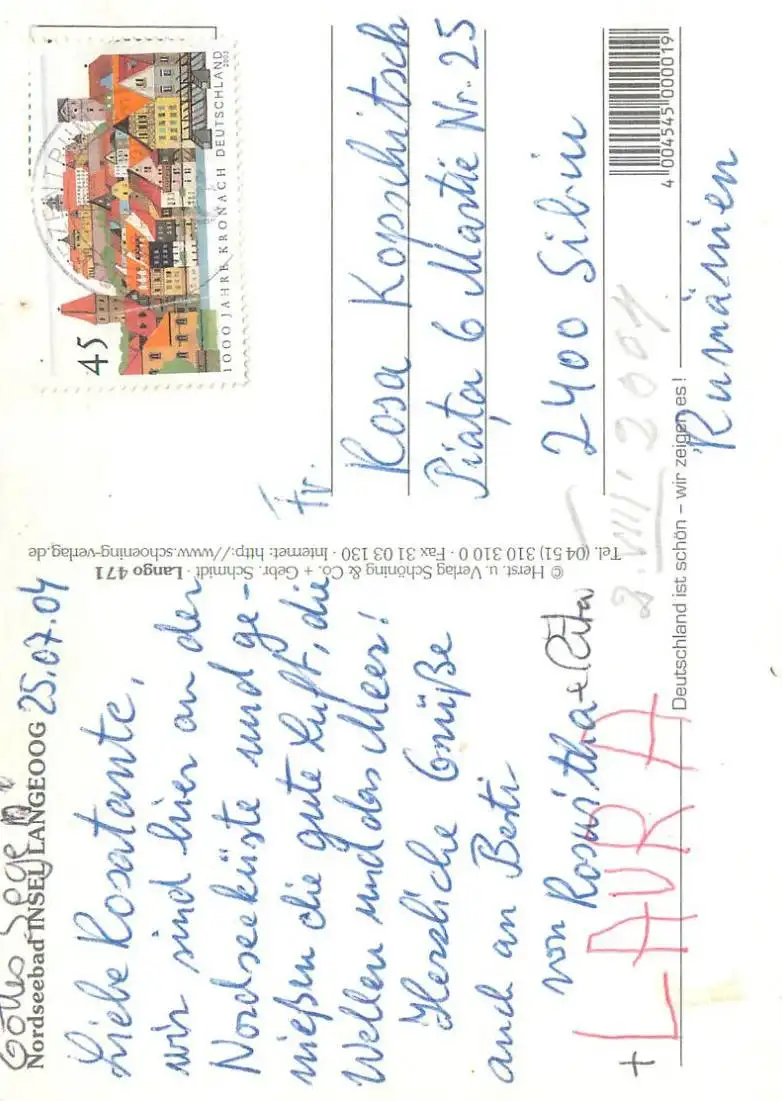 Gottes Segen
Nordseebad INSEL LANGEOOG 25.07.04
Liebe Rosatante,
wir sind hier an der
Nordseeküste und ge-
nießen die gute Luft, die
Wellen und das Meer!
Herzliche Grüße
auch an Berti
von Roswitha + Rita
+ LAURA
© Herst. u. Verlag Schöning & Co. + Gebr. Schmidt · Lango 471
Tel. (04 51) 310 310 0 · Fax 31 03 130 · Internet: http://www.schoening-verlag.de
45
1000 JAHRE KRONACH DEUTSCHLAND
2003
Fr.
Rosa Kopschitsch
Piaţa 6 Martie Nr. 25
2400 Sibiu
2.VIII.2004
Rumänien
Deutschland ist schön – wir zeigen es!
4 004545 000019